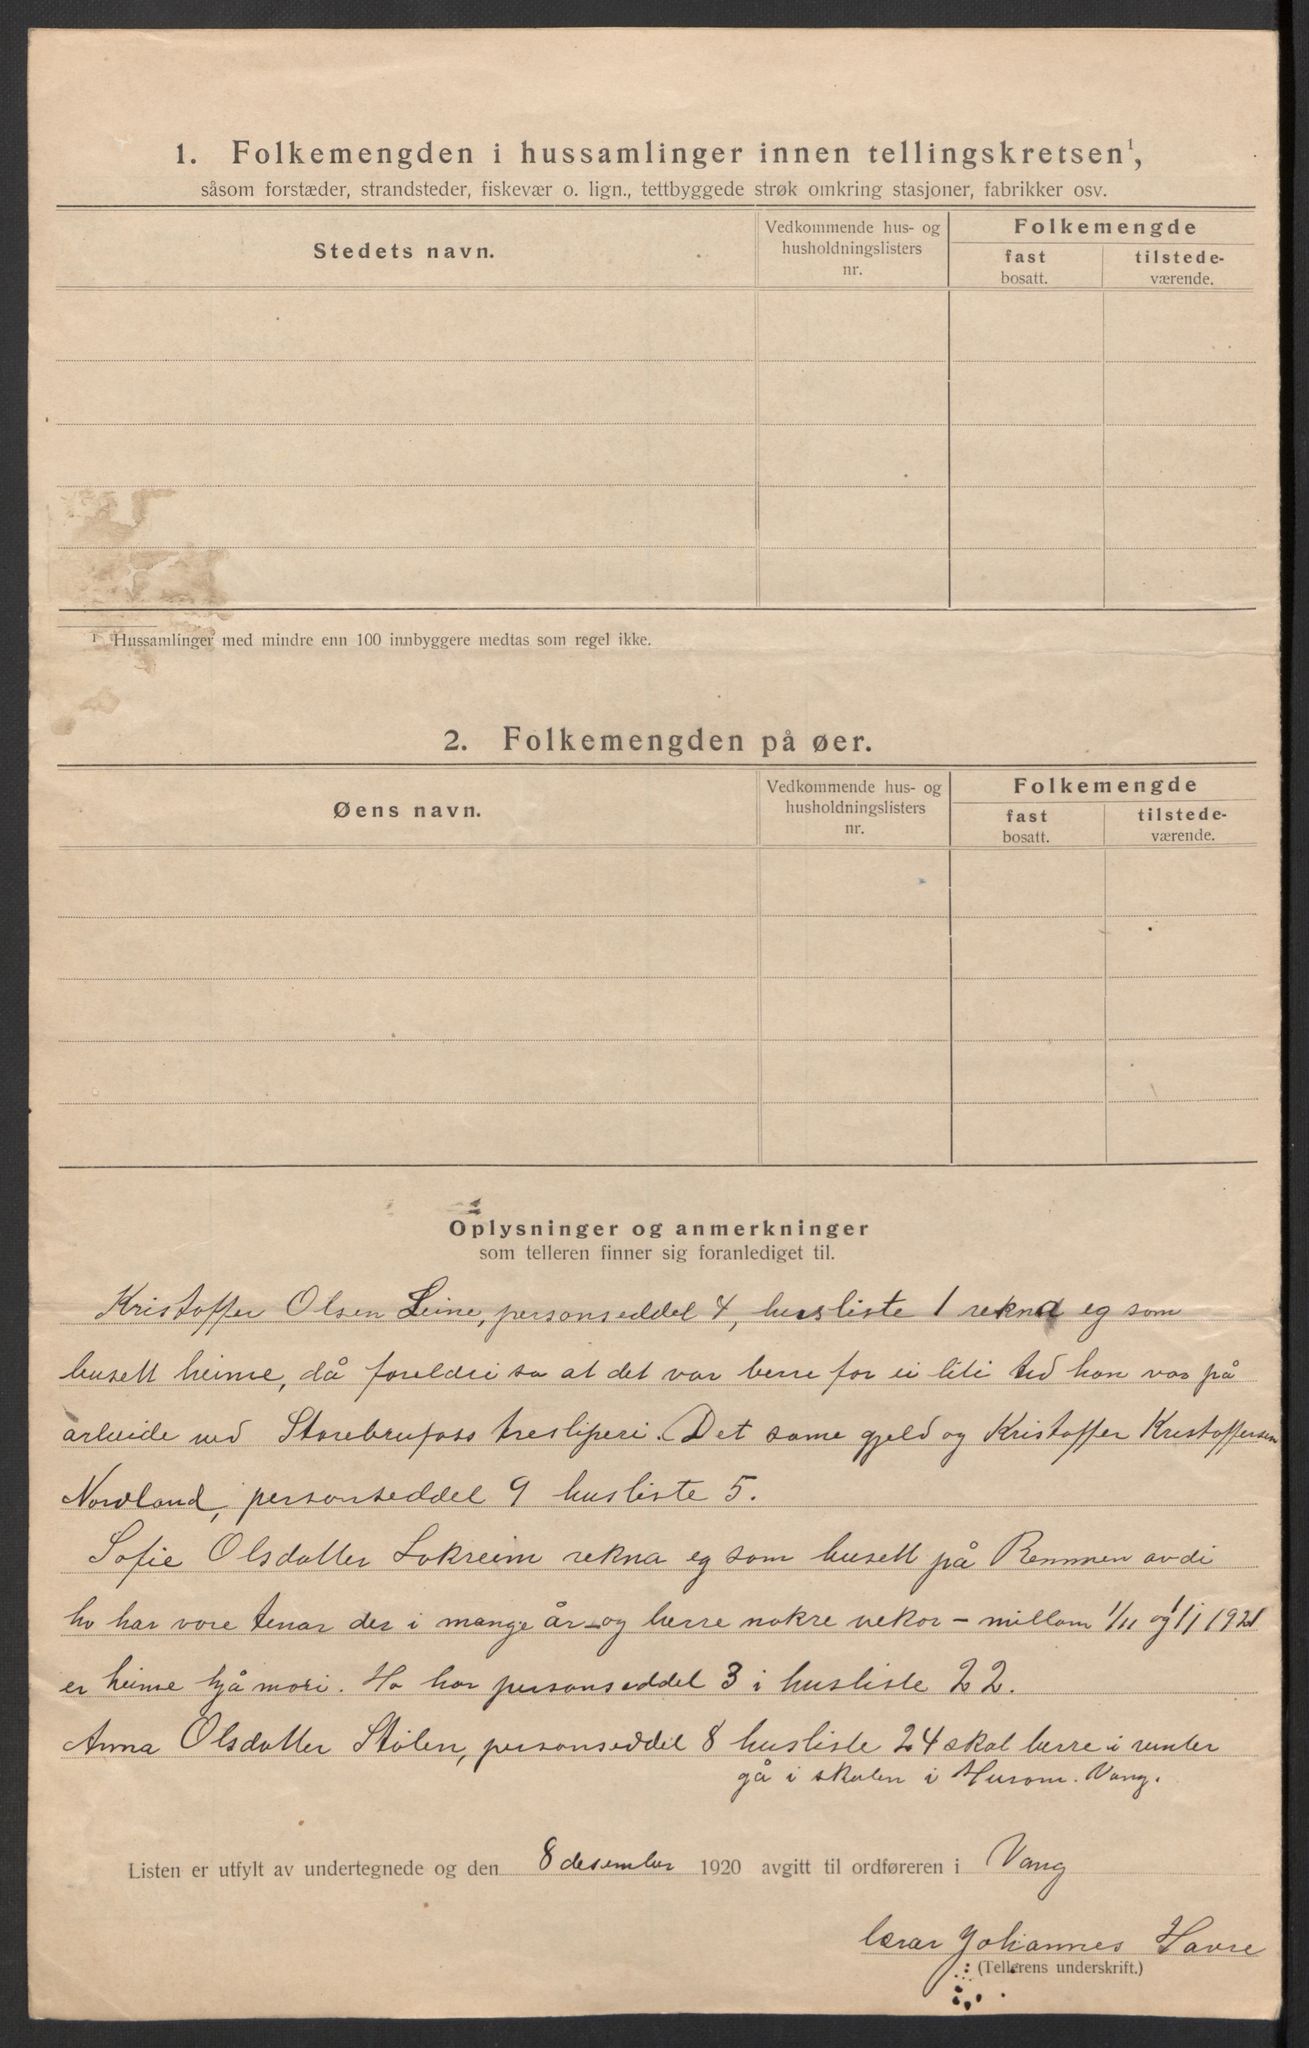 1. Folkemengden i hussamlinger innen tellingskretsen¹,
såsom forstæder, strandsteder, fiskevær o. lign., tettbyggede strøk omkring stasjoner, fabrikker osv.
Stedets navn.
Vedkommende hus- og
husholdningslisters
nr.
Folkemengde
fast
bosatt.
tilstede-
værende.
¹ Hussamlinger med mindre enn 100 innbyggere medtas som regel ikke.
2. Folkemengden på øer.
Øens navn.
Vedkommende hus- og
husholdningslisters
nr.
Folkemengde
fast
bosatt.
tilstede-
værende.
Oplysninger og anmerkninger
som telleren finner sig foranlediget til.
Kristoffer Olsen Leine, personseddel 4, husliste 1 rekna eg som
busett heime, då foreldri sa at det var berre for ei liti tid han var på
arbeide ved Storebrufoss tresliperi. Det same gjeld og Kristoffer Kristoffersen
Nordland, personseddel 9 husliste 5.
Sofie Olsdatter Lokreim rekna eg som busett på Remmen avdi
ho har vore tenar der i mange år og berre nokre vekor – millom 1/11 og 1/1 1921
er heime hjå mori. Ho har personseddel 3 i husliste 22.
Anna Olsdatter Stølen, personseddel 8 husliste 24 skal berre i vinter
gå i skulen i Hurom. Vang.
Listen er utfylt av undertegnede og den 8 desember 1920 avgitt til ordføreren i Vang
lærar Johannes Havre
(Tellerens underskrift.)